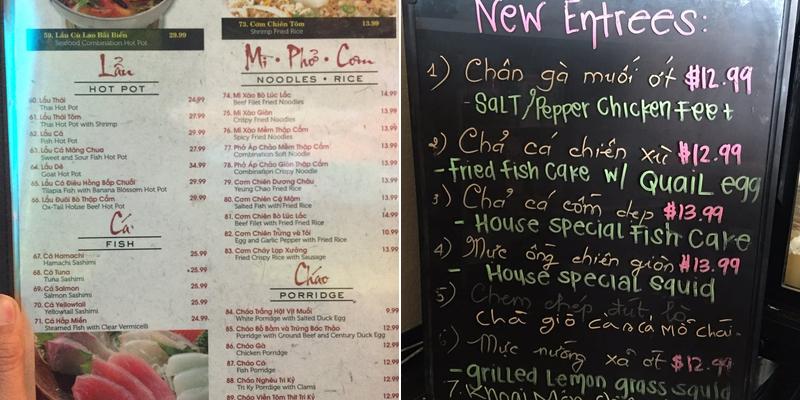 59. Lẩu Cù Lao Bãi Biển 29.99
Seafood Combination Hot Pot
Lẩu
HOT POT
60. Lẩu Thái 24.99
Thai Hot Pot
61. Lẩu Thái Tôm 27.99
Thai Hot Pot with Shrimp
62. Lẩu Cá 27.99
Fish Hot Pot
63. Lẩu Cá Măng Chua 27.99
Sweet and Sour Fish Hot Pot
64. Lẩu Dê 34.99
Goat Hot Pot
65. Lẩu Cá Điêu Hồng Bắp Chuối 29.99
Tilapia Fish with Banana Blossom Hot Pot
66. Lẩu Đuôi Bò Thập Cẩm 29.99
Ox-Tail House Beef Hot Pot
Cá
FISH
67. Cá Hamachi 25.99
Hamachi Sashimi
68. Cá Tuna 25.99
Tuna Sashimi
69. Cá Salmon 25.99
Salmon Sashimi
70. Cá Yellowtail 25.99
Yellowtail Sashimi
71. Cá Hấp Miến 24.99
Steamed Fish with Clear Vermicelli
73. Cơm Chiên Tôm 13.99
Shrimp Fried Rice
Mì • Phở • Cơm
NOODLES • RICE
74. Mì Xào Bò Lúc Lắc 14.99
Beef Filet Fried Noodles
75. Mì Xào Giòn 13.99
Crispy Fried Noodles
76. Mì Xào Mềm Thập Cẩm 13.99
Spicy Fried Noodles
77. Phở Áp Chảo Mềm Thập Cẩm 13.99
Combination Soft Noodle
78. Phở Áp Chảo Giòn Thập Cẩm 13.99
Combination Crispy Noodle
79. Cơm Chiên Dương Châu 13.99
Yeung Chao Fried Rice
80. Cơm Chiên Cá Mặn 13.99
Salted Fish with Fried Rice
81. Cơm Chiên Bò Lúc Lắc 14.99
Beef Filet with Fried Rice
82. Cơm Chiên Trứng và Tỏi 10.99
Egg and Garlic Pepper with Fried Rice
83. Cơm Cháy Lạp Xưởng 13.99
Fried Crispy Rice with Sausage
Cháo
PORRIDGE
84. Cháo Trắng Hột Vịt Muối 9.99
White Porridge with Salted Duck Egg
85. Cháo Bò Bằm và Trứng Bắc Thảo 12.99
Porridge with Ground Beef and Century Duck Egg
86. Cháo Gà 12.99
Chicken Porridge
87. Cháo Cá 12.99
Fish Porridge
88. Cháo Nghêu Tri Kỷ 12.99
Tri Ky Porridge with Clams
89. Cháo Viên Tôm Thịt Tri Kỷ 12.99
New Entrees:
1) Chân gà muối ớt $12.99
- SALT/Pepper Chicken Feet
2) Chả cá chiên xù $12.99
- Fried Fish Cake w/ Quail egg
3) Chả cá cốm dẹp $13.99
- House special Fish Care
4) Mực ống chiên giòn $13.99
- House special squid
5) Chem chép đút lò
chả giò canCá Mồ chai.
6) Mực nướng xả ớt $12.99
- grilled Lemon grass squid
7. Khoai Môn